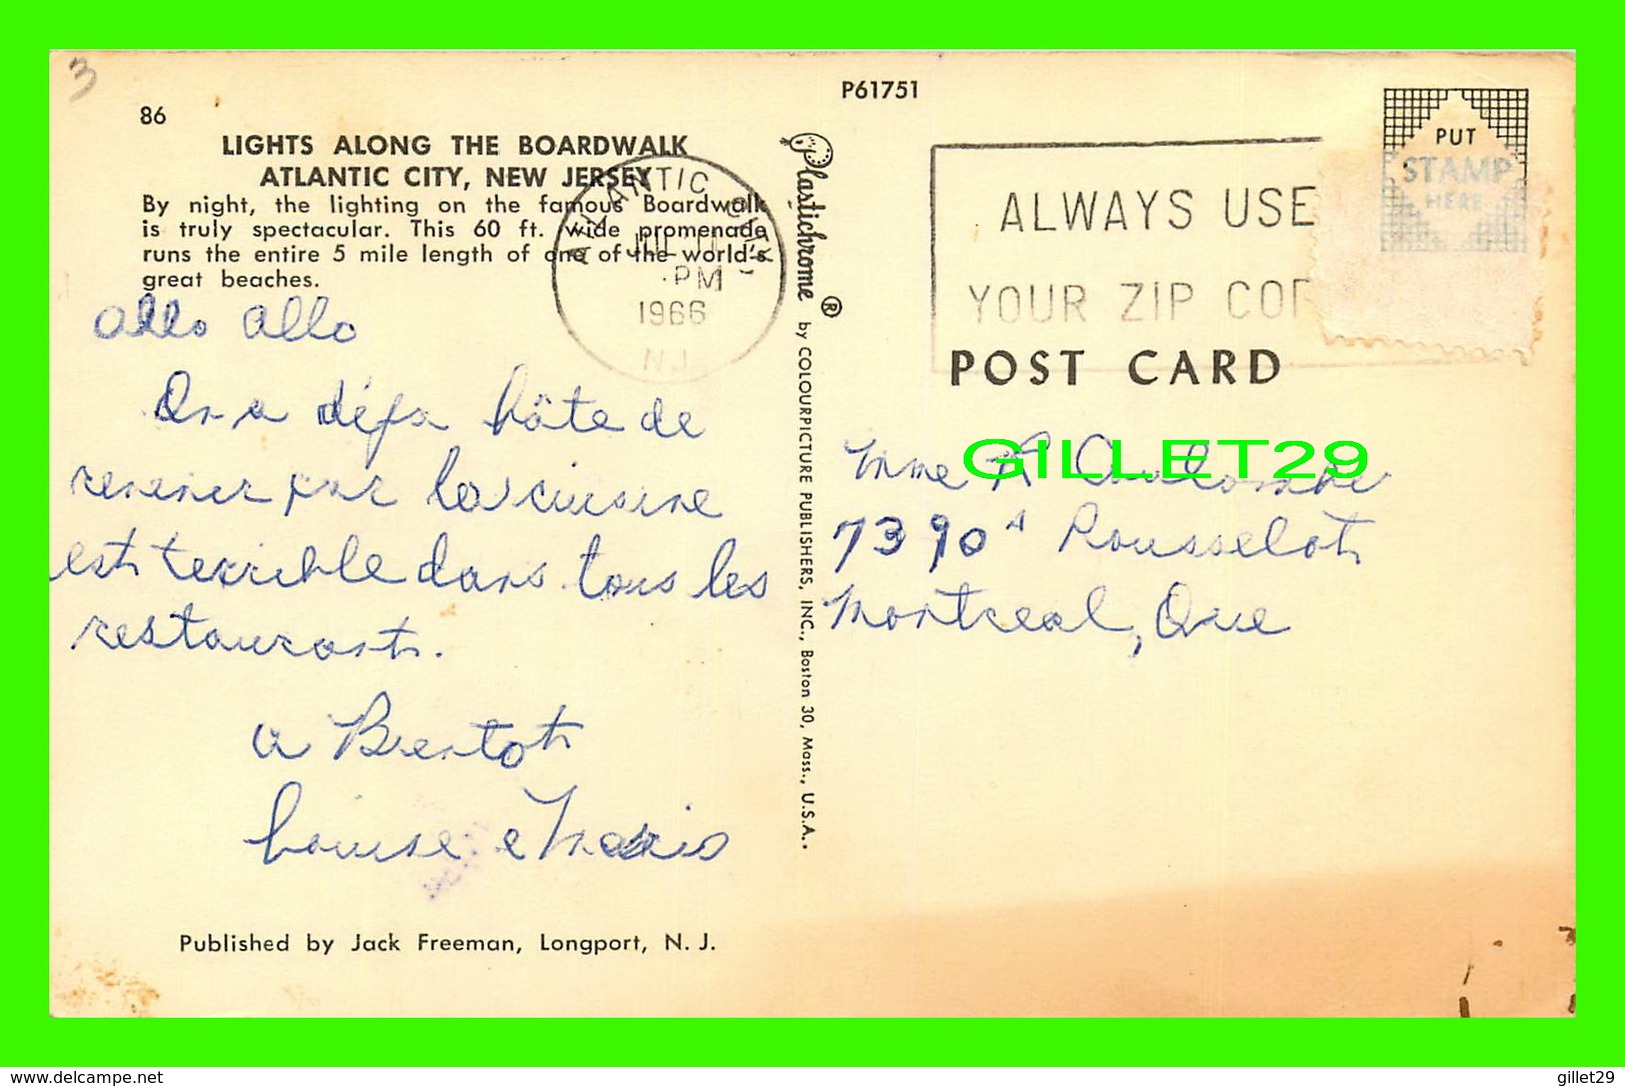 3
86
LIGHTS ALONG THE BOARDWALK
ATLANTIC CITY, NEW JERSEY
By night, the lighting on the famous Boardwalk
is truly spectacular. This 60 ft. wide promenade
runs the entire 5 mile length of one of the world's
great beaches.
ATLANTIC CITY
PM
1966
N.J.
allo allo
On a déja hâte de
revenir par la cuisine
est terrible dans tous les
restaurant.
a Bientot
Louise e
Published by Jack Freeman, Longport, N. J.
Plastichrome ® by COLOURPICTURE PUBLISHERS, INC., Boston 30, Mass., U.S.A.
P61751
PUT
STAMP
HERE
ALWAYS USE
YOUR ZIP COD
POST CARD
GILLET29
Mme R
7390 A Rousselot
Montreal, Que
www.delcampe.net
gillet29